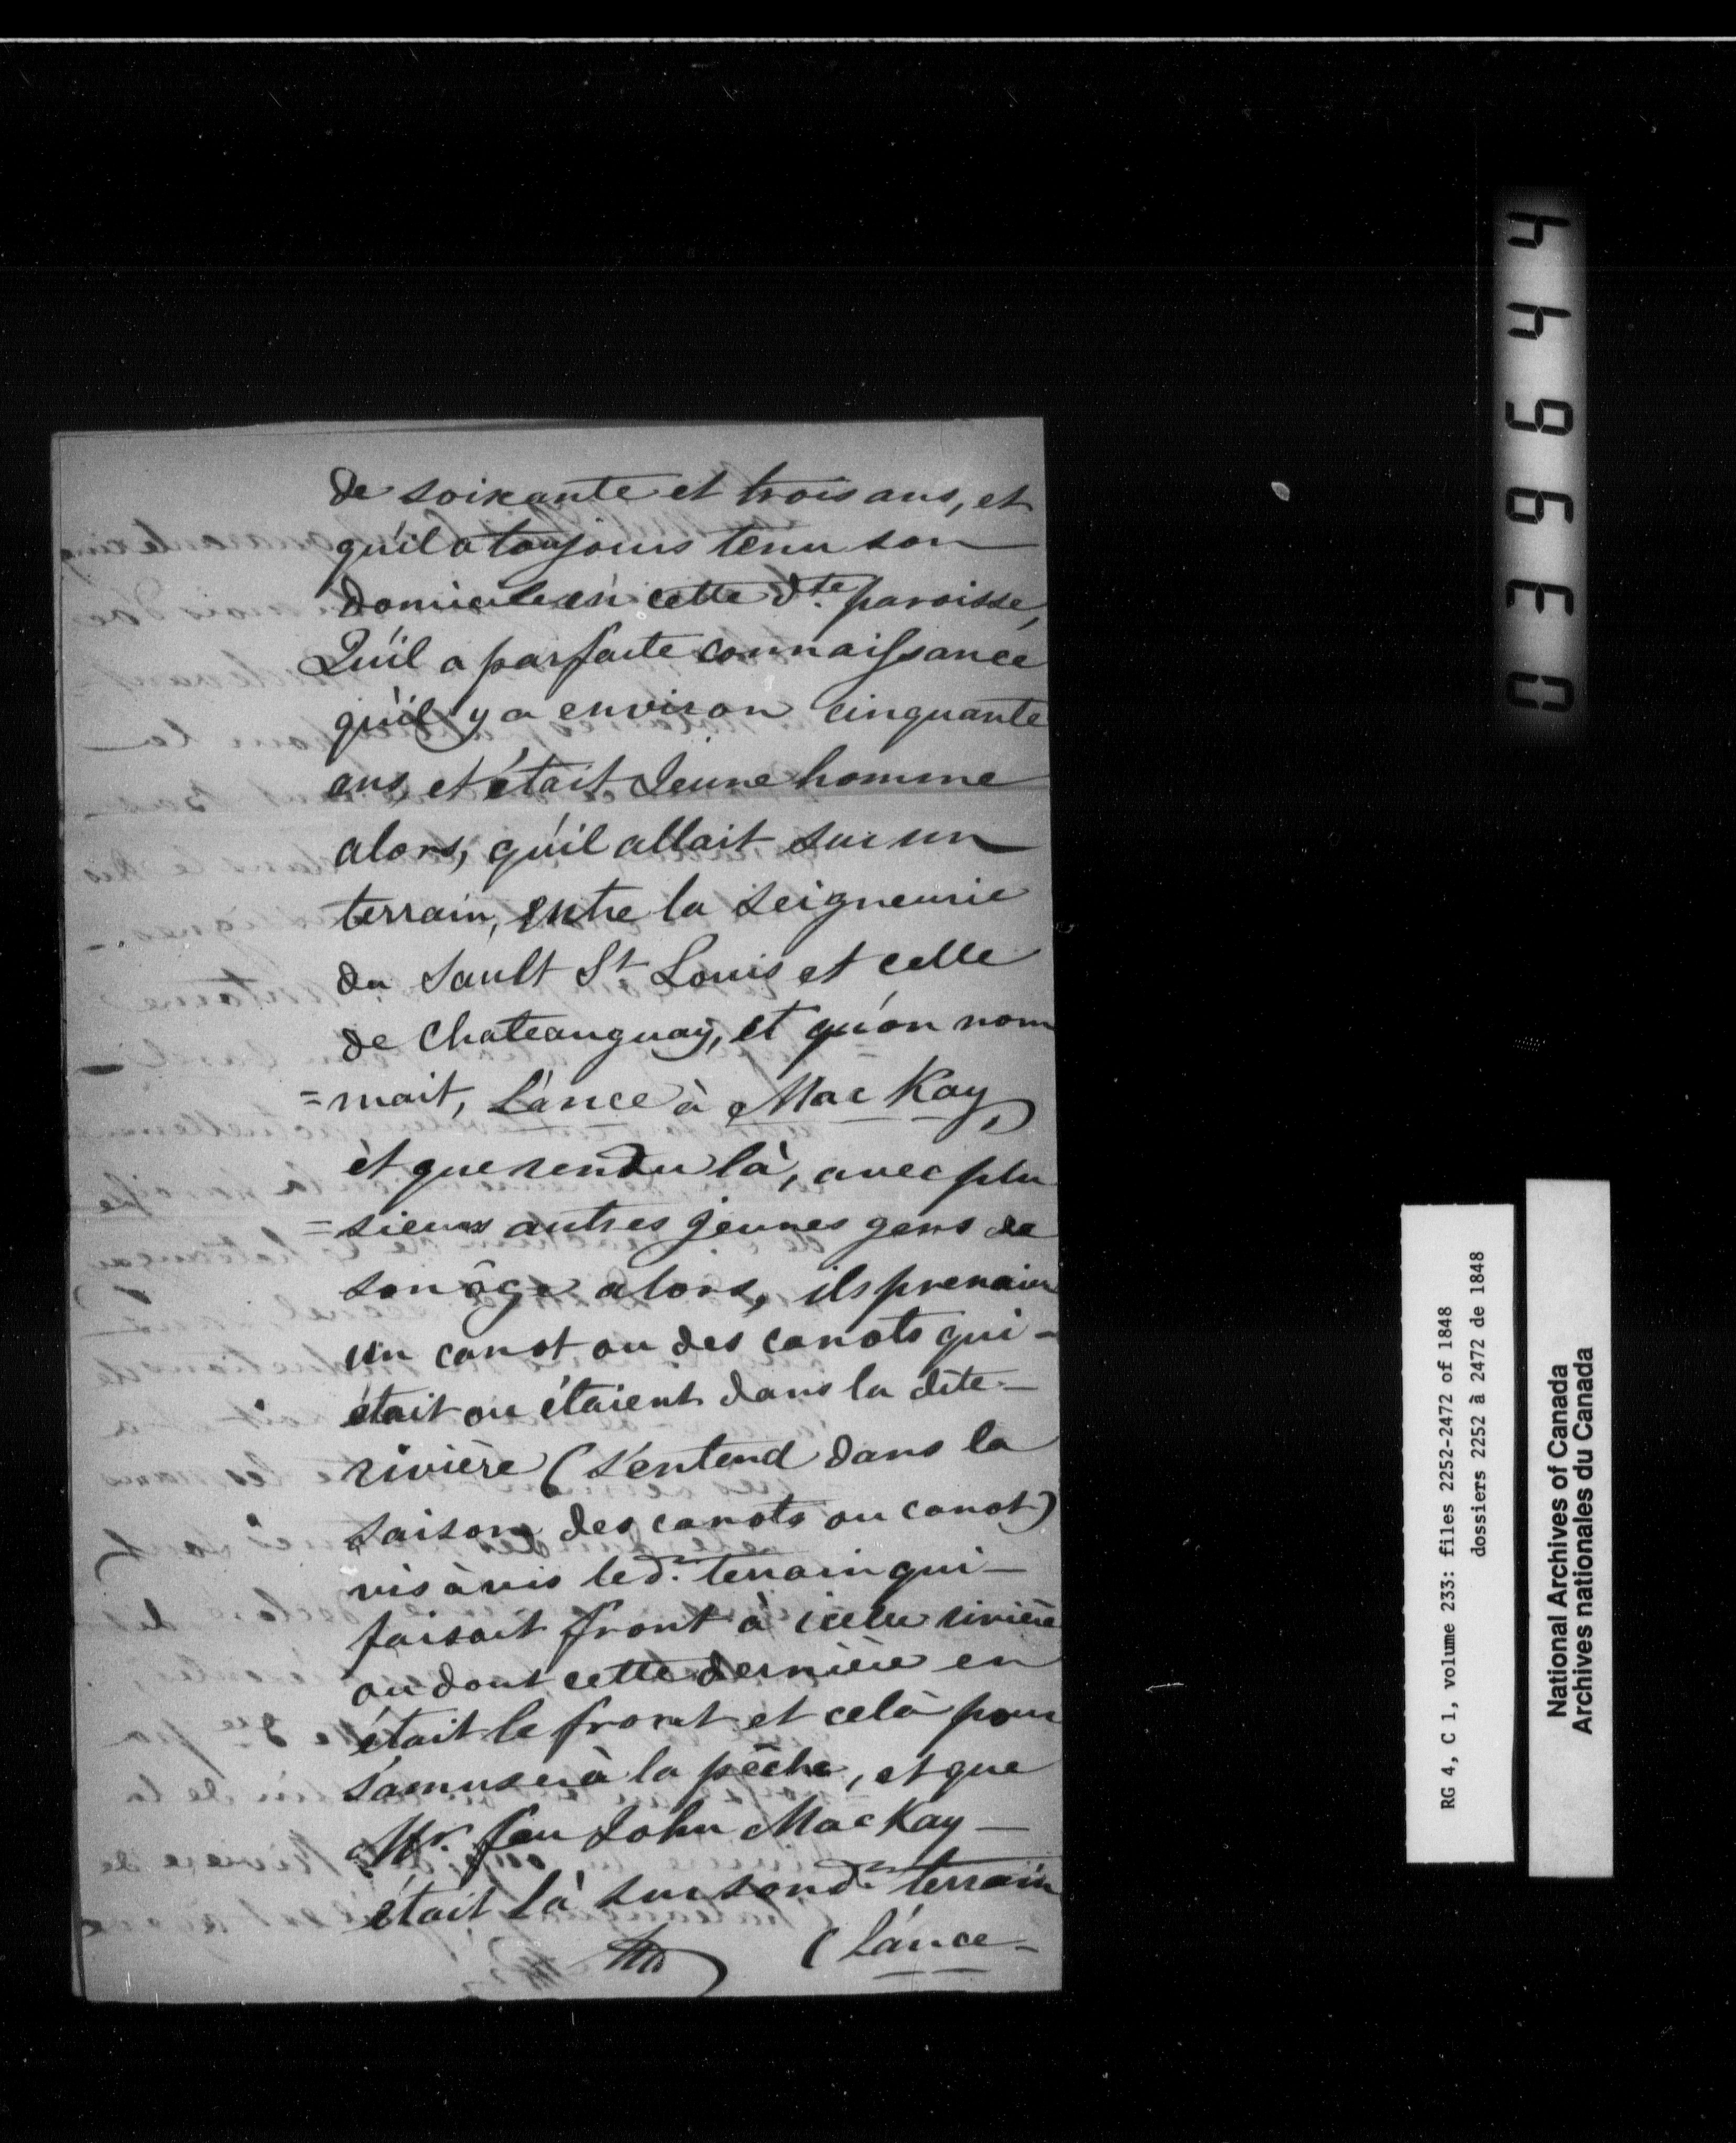 de soixante et trois ans, et
qu'il a toujours tenu son
domicile en cette dte. paroisse,
Qu'il a parfaite connaissance
qu'il y a environ cinquante
ans, et était Jeune homme
alors, qu'il allait sur un
terrain, entre la Seigneurie
du Sault St. Louis et celle
de Chateauguay, et qu'on nom
=mait, L'ance à MacKay,
et que rendu là, avec plu
=sieurs autres jeunes gens de
son âge alors, ils prenaient
un canot ou des canots qui-
était ou étaient dans la dite-
rivière (s'entend dans la
saison des canots ou canot)
vis à vis led. terrain qui-
faisait front à icelle rivière
ou dont cette dernière en
était le front et celà pour
s'amuser à la pêche, et que
Mr. feu John MacKay-
était là sur sond. terrain
(l'ance-
039644
RG 4, C 1, volume 233: files 2252-2472 of 1848
dossiers 2252 à 2472 de 1848
National Archives of Canada
Archives nationales du Canada